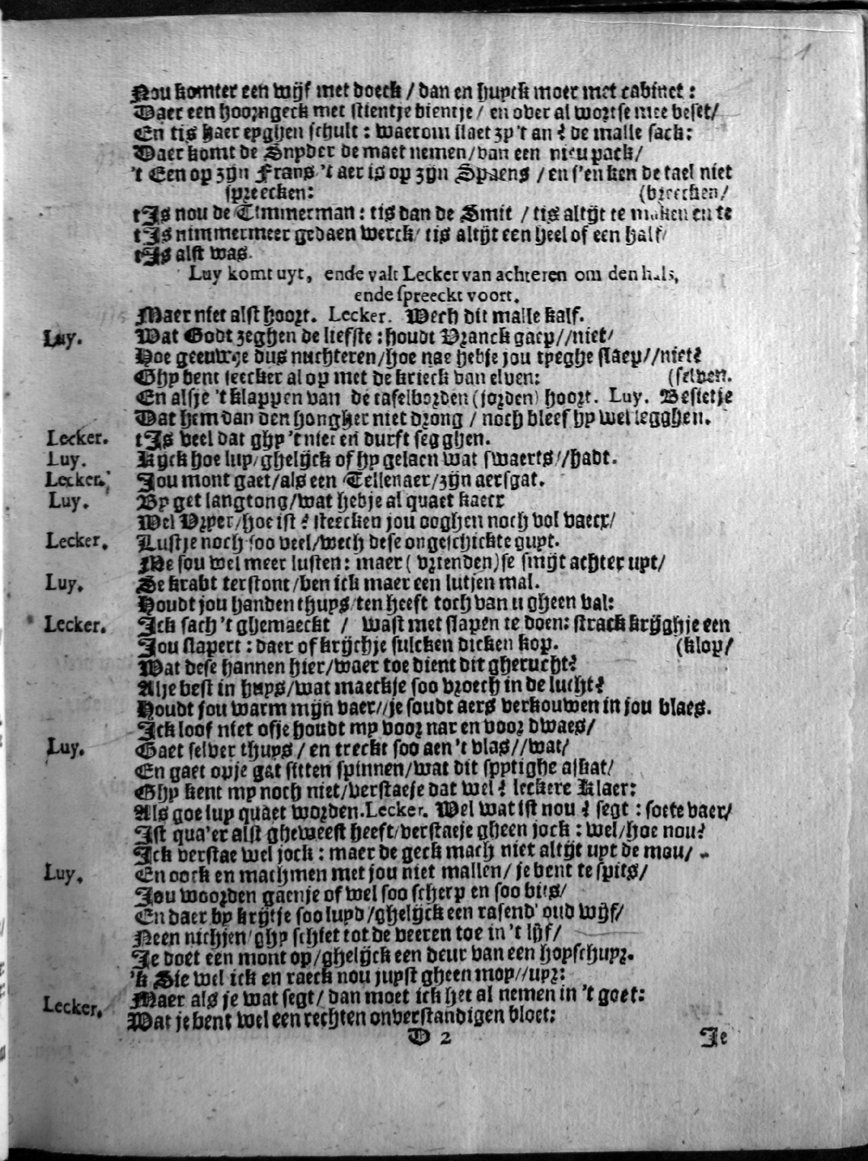 Nou komter een wijf met doeck / dan en huyck moer met cabinet :
Daer een hoorngeck met stientje bientje / en over al wortse mee beset/
En tis haer eyghen schult : waerom slaet zy 't an ? de malle sack:
Daer komt de Snyder de maet nemen/van een nieu pack/
't Een op zijn Frans 't aer is op zijn Spaens / en s'en ken de tael niet
spreecken: (breecken/
tIs nou de Timmerman : tis dan de Smit / tis altijt te maken en te
tIs nimmermeer gedaen werck/ tis altijt een heel of een half/
tIs alst was.
Luy komt uyt, ende valt Lecker van achteren om den hals,
ende spreeckt voort.
Maer niet alst hoort. Lecker. Wech dit malle kalf.
Luy. Wat Godt zeghen de liefste : houdt Vranck gaep//niet/
Hoe geeuw-je dus nuchteren/hoe nae hebje jou tyeghe slaep//niet?
Ghy bent seecker al op met de krieck van elven: (selven.
En alsje 't klappen van de tafelborden (jorden) hoort. Luy. Besietje
Dat hem dan den hongher niet drong / noch bleef hy wel legghen.
Lecker. tIs veel dat ghy 't niet en durft segghen.
Luy. Kyck hoe luy/ghelijck of hy gelaen wat swaerts//hadt.
Lecker. Jou mont gaet/als een Tellenaer/zijn aersgat.
Luy. By get langtong/wat hebje al quaet kaecr
Wel Vryer/hoe ist ? steecken jou ooghen noch vol vaecx/
Lecker. Lustje noch soo veel/wech dese ongeschickte guyt.
Me sou wel meer lusten: maer ( vrienden)se smijt achter uyt/
Luy. Se krabt terstont/ben ick maer een lutjen mal.
Houdt jou handen thuys/ten heeft toch van u gheen val:
Lecker. Ick sach 't ghemaeckt / wast met slapen te doen: strack krijghje een
Jou slapert : daer of krijchje sulcken dicken kop. (klop/
Wat dese hannen hier/waer toe dient dit gherucht?
Alje best in huys/wat maeckje soo vroech in de lucht?
Houdt jou warm mijn vaer//je soudt aers verkouwen in jou blaes.
Ick loof niet ofje houdt my voor nar en voor dwaes/
Luy. Gaet selver thuys / en treckt soo aen 't vlas//wat/
En gaet opje gat sitten spinnen/wat dit spytighe askat/
Ghy kent my noch niet/verstaeje dat wel ? leckere Klaer:
Als goe luy quaet worden.Lecker. Wel wat ist nou ? segt : soete vaer/
Ist qua'er alst gheweest heeft/verstaeje gheen jock : wel/hoe nou?
Ick verstae wel jock : maer de geck mach niet altijt uyt de mou/
Luy. En oock en machmen met jou niet mallen/ je bent te spits/
Jou woorden gaenje of wel soo scherp en soo bits/
En daer by krijtje soo luyd/ghelijck een rasend' oud wijf/
Neen nichjen/ghy schiet tot de veeren toe in 't lijf/
Je doet een mont op/ghelijck een deur van een hopschuyr.
'k Sie wel ick en raeck nou juyst gheen mop//uyr:
Lecker. Maer als je wat segt/ dan moet ick het al nemen in 't goet:
Wat je bent wel een rechten onverstandigen bloet:
D 2 Je